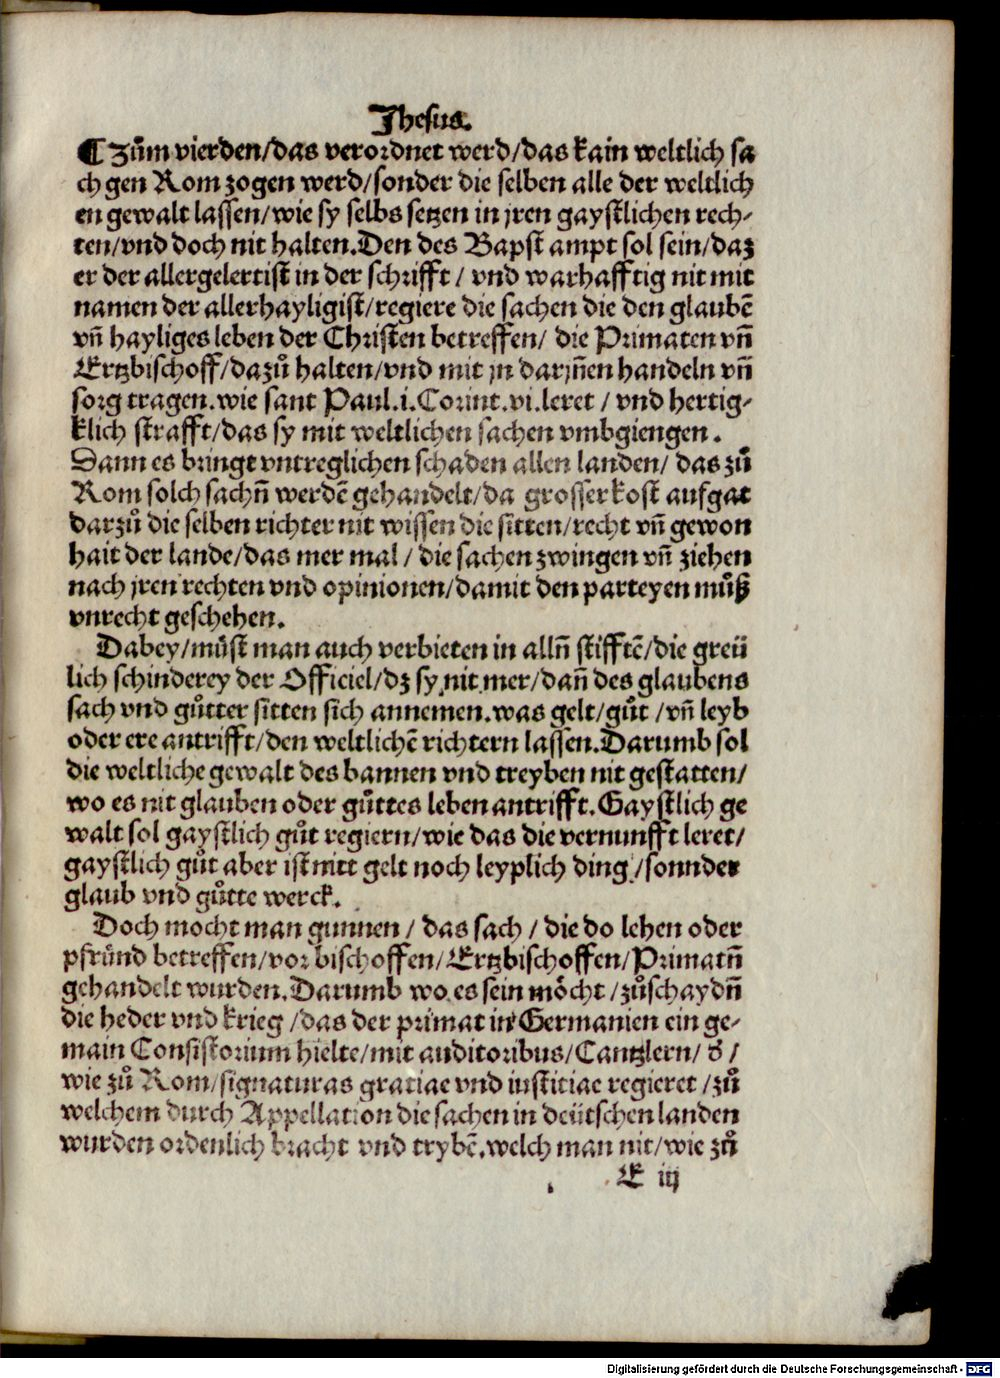 Jhesus.
¶ Zům vierden/das verordnet werd/das kain weltlich sa
ch gen Rom zogen werd/sonder die selben alle der weltlich
en gewalt lassen/wie sy selbs setzen in jren gaystlichen rech-
ten/vnd doch nit halten.Den des Bapst ampt sol sein/daz
er der allergelertist in der schrifft/ vnd warhafftig nit mit
namen der allerhayligist/regiere die sachen die den glaubē
vñ hayliges leben der Christen betreffen/ die Primaten vñ
Ertzbischoff/dazů halten/vnd mit jn darjñen handeln vñ
sorg tragen.wie sant Paul.i.Corint.vi.leret / vnd hertig-
klich strafft/das sy mit weltlichen sachen vmbgiengen.
Dann es bringt vntreglichen schaden allen landen/ das zů
Rom solch sachñ werdē gehandelt/da grosser kost aufgat
darzů die selben richter nit wissen die sitten/recht vñ gewon
hait der lande/das mer mal / die sachen zwingen vñ ziehen
nach jren rechten vnd opinionen/damit den parteyen můß
vnrecht geschehen.
Dabey/můst man auch verbieten in allñ stifftē/die greü
lich schinderey der Officiel/dz sy nit mer/dañ des glaubens
sach vnd gůtter sitten sich annemen.was gelt/gůt /vñ leyb
oder ere antrifft/den weltlichē richtern lassen.Darumb sol
die weltliche gewalt des bannen vnd treyben nit gestatten/
wo es nit glauben oder gůttes leben antrifft.Gaystlich ge
walt sol gaystlich gůt regiern/wie das die vernunfft leret/
gaystlich gůt aber ist nitt gelt noch leyplich ding /sonnder
glaub vnd gůtte werck.
Doch mocht man gunnen / das sach / die do lehen oder
pfründ betreffen/vor bischoffen/Ertzbischoffen/Primatñ
gehandelt wurden.Darumb wo es sein möcht/zůschaydñ
die heder vnd krieg /das der primat in Germanien ein ge-
main Consistorium hielte/mit auditoribus/Cantzlern/ď/
wie zů Rom/signaturas gratiae vnd iustitiae regieret /zů
welchem durch Appellation die sachen in deütschen landen
wurden ordenlich bracht vnd trybē.welch man nit/wie zů
E iij
Digitalisierung gefördert durch die Deutsche Forschungsgemeinschaft - DFG